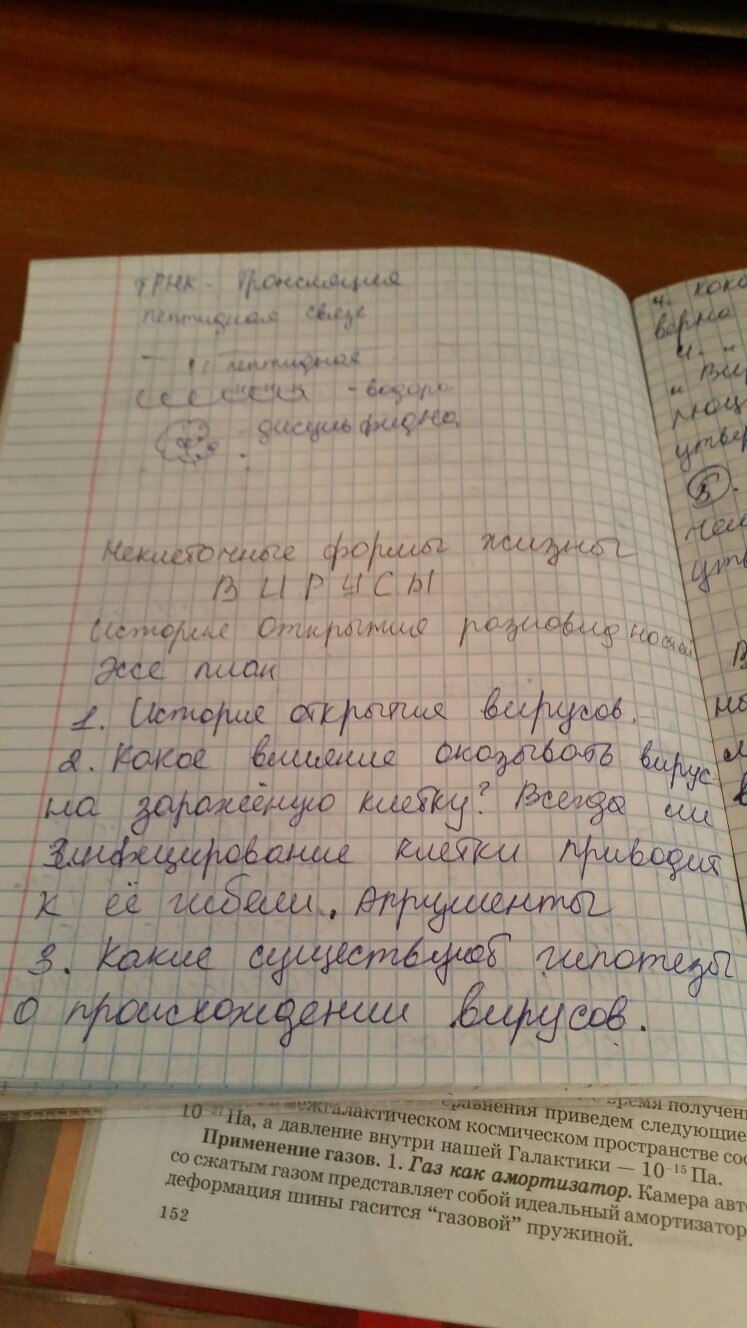 тРНК - Трансляция
пептидная связь
- пептидная
- водоро
- дисульфидна
Неклеточные формы жизны
ВИРУСЫ
История открытия разновидностей
Эссе план
1. История открытия вирусов.
2. Какое влияние оказывать вирус
на заражёную клетку? Всегда ли
инфецирование клетки приводит
к её гибели. Аргрументы
3. Какие существуют гипотезы
о происхождении вирусов.
4. како
верна
утвер
5.
сравнения приведем следующие
межгалактическом космическом пространстве соо
Па, а давление внутри нашей Галактики — 10⁻¹⁵ Па.
Применение газов. 1. Газ как амортизатор. Камера авт
со сжатым газом представляет собой идеальный амортизатор
деформация шины гасится “газовой” пружиной.
152